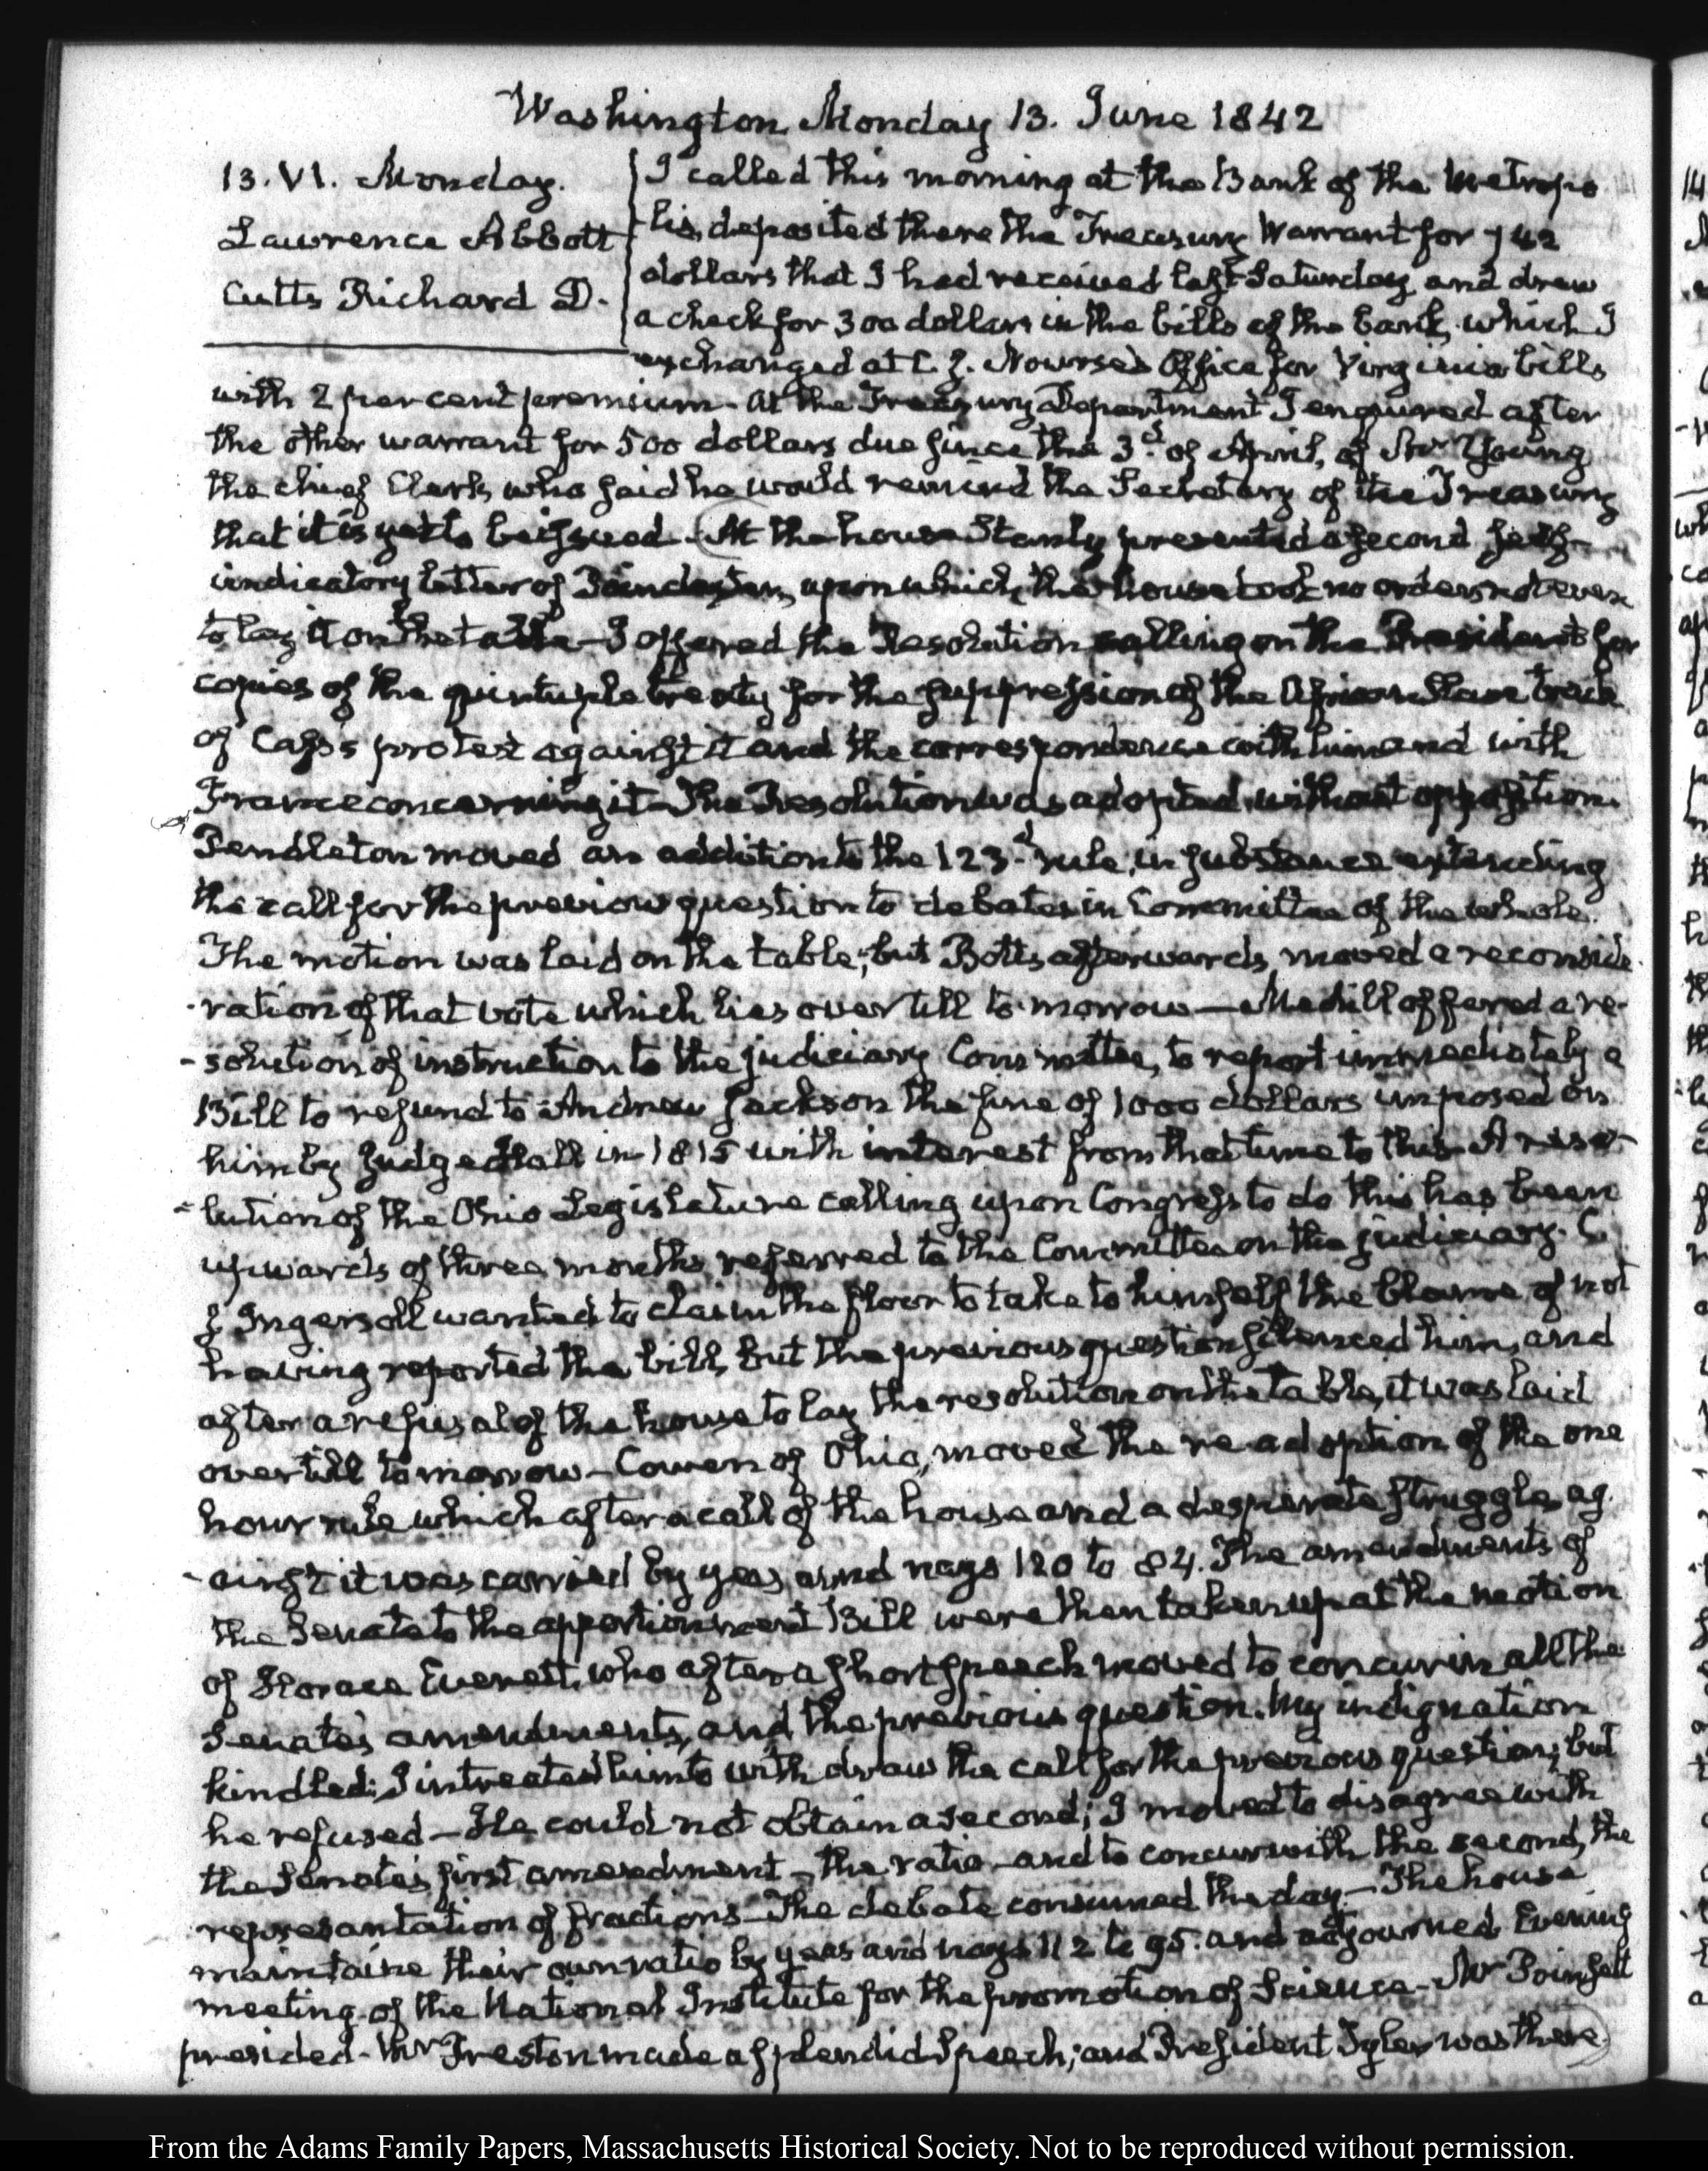 Washington Monday 13. June 1842
13. VI. Monday.
Lawrence Abbott
Cutts Richard D.
I called this morning at the Bank of the Metropo
lis, deposited there the Treasury Warrant for 742
dollars that I had received last Saturday and drew
a check for 300 dollars in the bills of the bank, which I
exchanged at C. J. Nourse's Office for Virginia bills
with 2 per cent premium - At the Treasury Department I enquired after
the other warrant for 500 dollars due since the 3d. of April, of Mr Young
the chief Clerk, who said he would remind the Secretary of the Treasury
that it is yet to be issued - At the house Stanly presented a second self-
vindicatory letter of Poindexter, upon which, the house took no order not even
to lay it on the table - I offered the Resolution calling on the President for
copies of the quintuple treaty for the suppression of the African Slave trade
of Cass's protest against it and the correspondence with him and with
France concerning it - The Resolution was adopted without opposition.
Pendleton moved an addition to the 123.d rule, in substance extending
the call for the previous question to debates in Committee of the whole.
The motion was laid on the table; but Botts afterwards moved a reconside
-ration of that vote which lies over till to-morrow — Medill offered a re-
-solution of instruction to the judiciary Committee, to report immediately a
Bill to refund to Andrew Jackson the fine of 1000 dollars imposed on
him by Judge Hall in 1815 with interest from that time to this - A reso-
-lution of the Ohio Legislature calling upon Congress to do this has been
upwards of three months referred to the Committee on the judiciary. C.
J. Ingersoll wanted to claim the floor to take to himself the blame of not
having reported the bill, but the previous question silenced him, and
after a refusal of the house to lay the resolution on the table, it was laid
over till tomorrow - Cowen of Ohio, moved the re-adoption of the one
hour rule which after a call of the house and a desperate struggle ag-
-ainst it was carried by yeas and nays 120 to 84. The amendments of
the Senate to the apportionment Bill were then taken up at the motion
of Horace Everett, who after a short speech moved to concur in all the
Senate's amendments, and the previous question. My indignation
kindled; I intreated him to withdraw the call for the previous question; but
he refused - He could not obtain a second; I moved to disagree with
the Senate's first amendment - the ratio - and to concur with the second, the
representation of fractions - The debate consumed the day - The house
maintaine their own ratio by yeas and nays 112 to 95. and adjourned Evening
meeting of the National Institute for the promotion of Science - Mr Poinsett
presided - Mr Preston made a splendid Speech; and President Tyler was there.
From the Adams Family Papers, Massachusetts Historical Society. Not to be reproduced without permission.